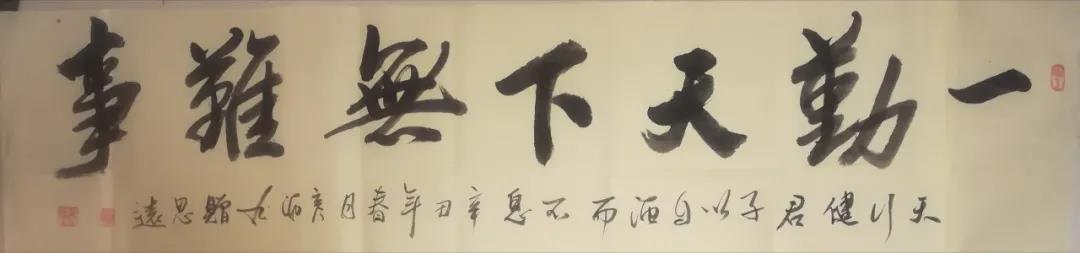 一勤天下無難事
天行健君子以自而不息辛丑年春月书赠思遠